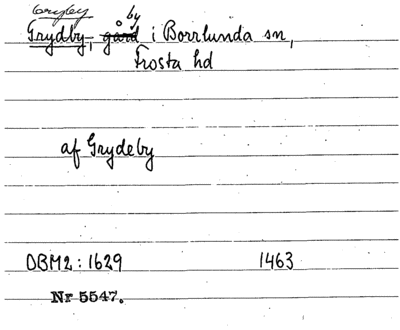 Gryby
by
Grydby, gård i Borrlunda sn,
Frosta hd
af Grydeby
DBM2: 1629 1463
Nr 5547.